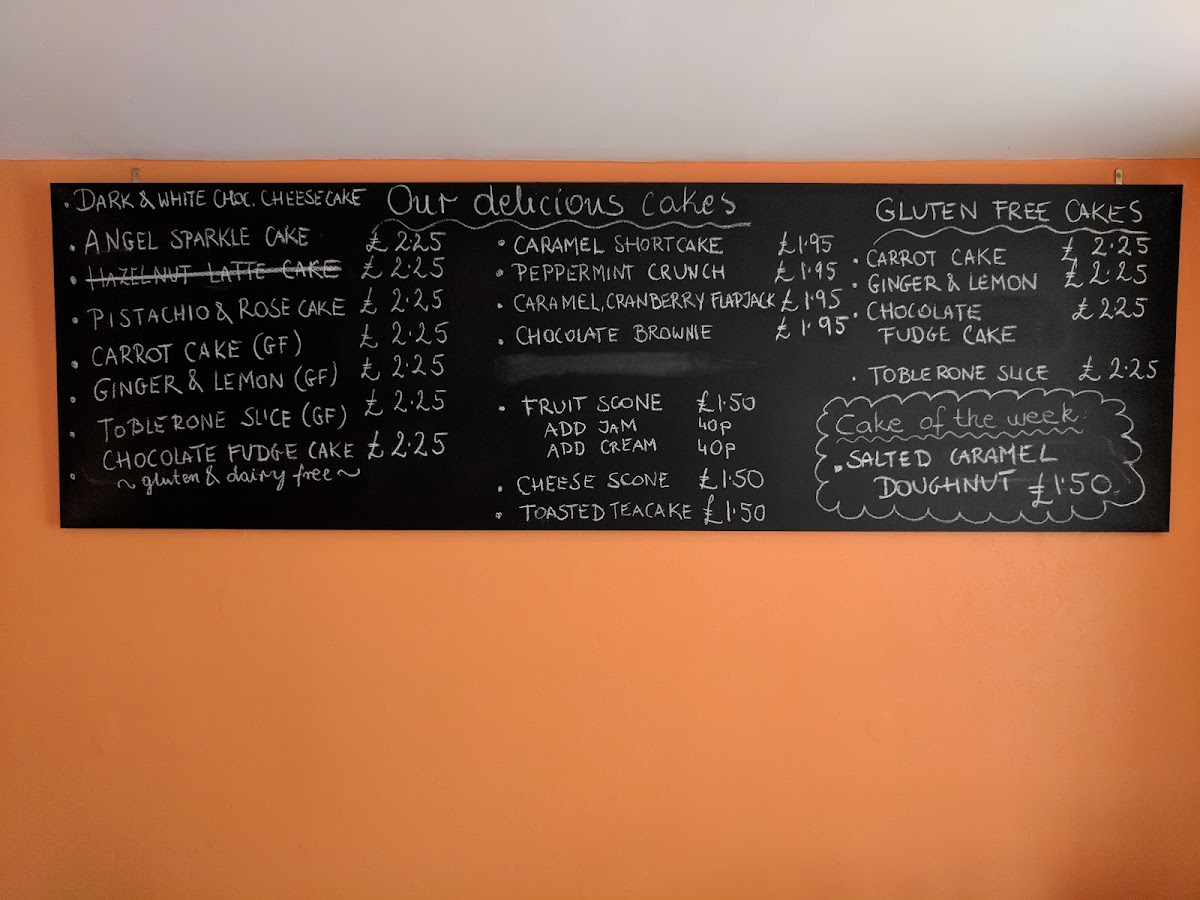 Our delicious cakes
• DARK & WHITE CHOC. CHEESECAKE
• ANGEL SPARKLE CAKE £2.25
• HAZELNUT LATTE CAKE £2.25
• PISTACHIO & ROSE CAKE £2.25
• CARROT CAKE (GF) £2.25
• GINGER & LEMON (GF) £2.25
• TOBLERONE SLICE (GF) £2.25
• CHOCOLATE FUDGE CAKE £2.25
~ gluten & dairy free ~
• CARAMEL SHORTCAKE £1.95
• PEPPERMINT CRUNCH £1.95
• CARAMEL, CRANBERRY FLAPJACK £1.95
• CHOCOLATE BROWNIE £1.95
• FRUIT SCONE £1.50
ADD JAM 40p
ADD CREAM 40p
• CHEESE SCONE £1.50
• TOASTED TEACAKE £1.50
GLUTEN FREE CAKES
• CARROT CAKE £2.25
• GINGER & LEMON £2.25
• CHOCOLATE £2.25
FUDGE CAKE
• TOBLERONE SLICE £2.25
Cake of the week:
• SALTED CARAMEL
DOUGHNUT £1.50